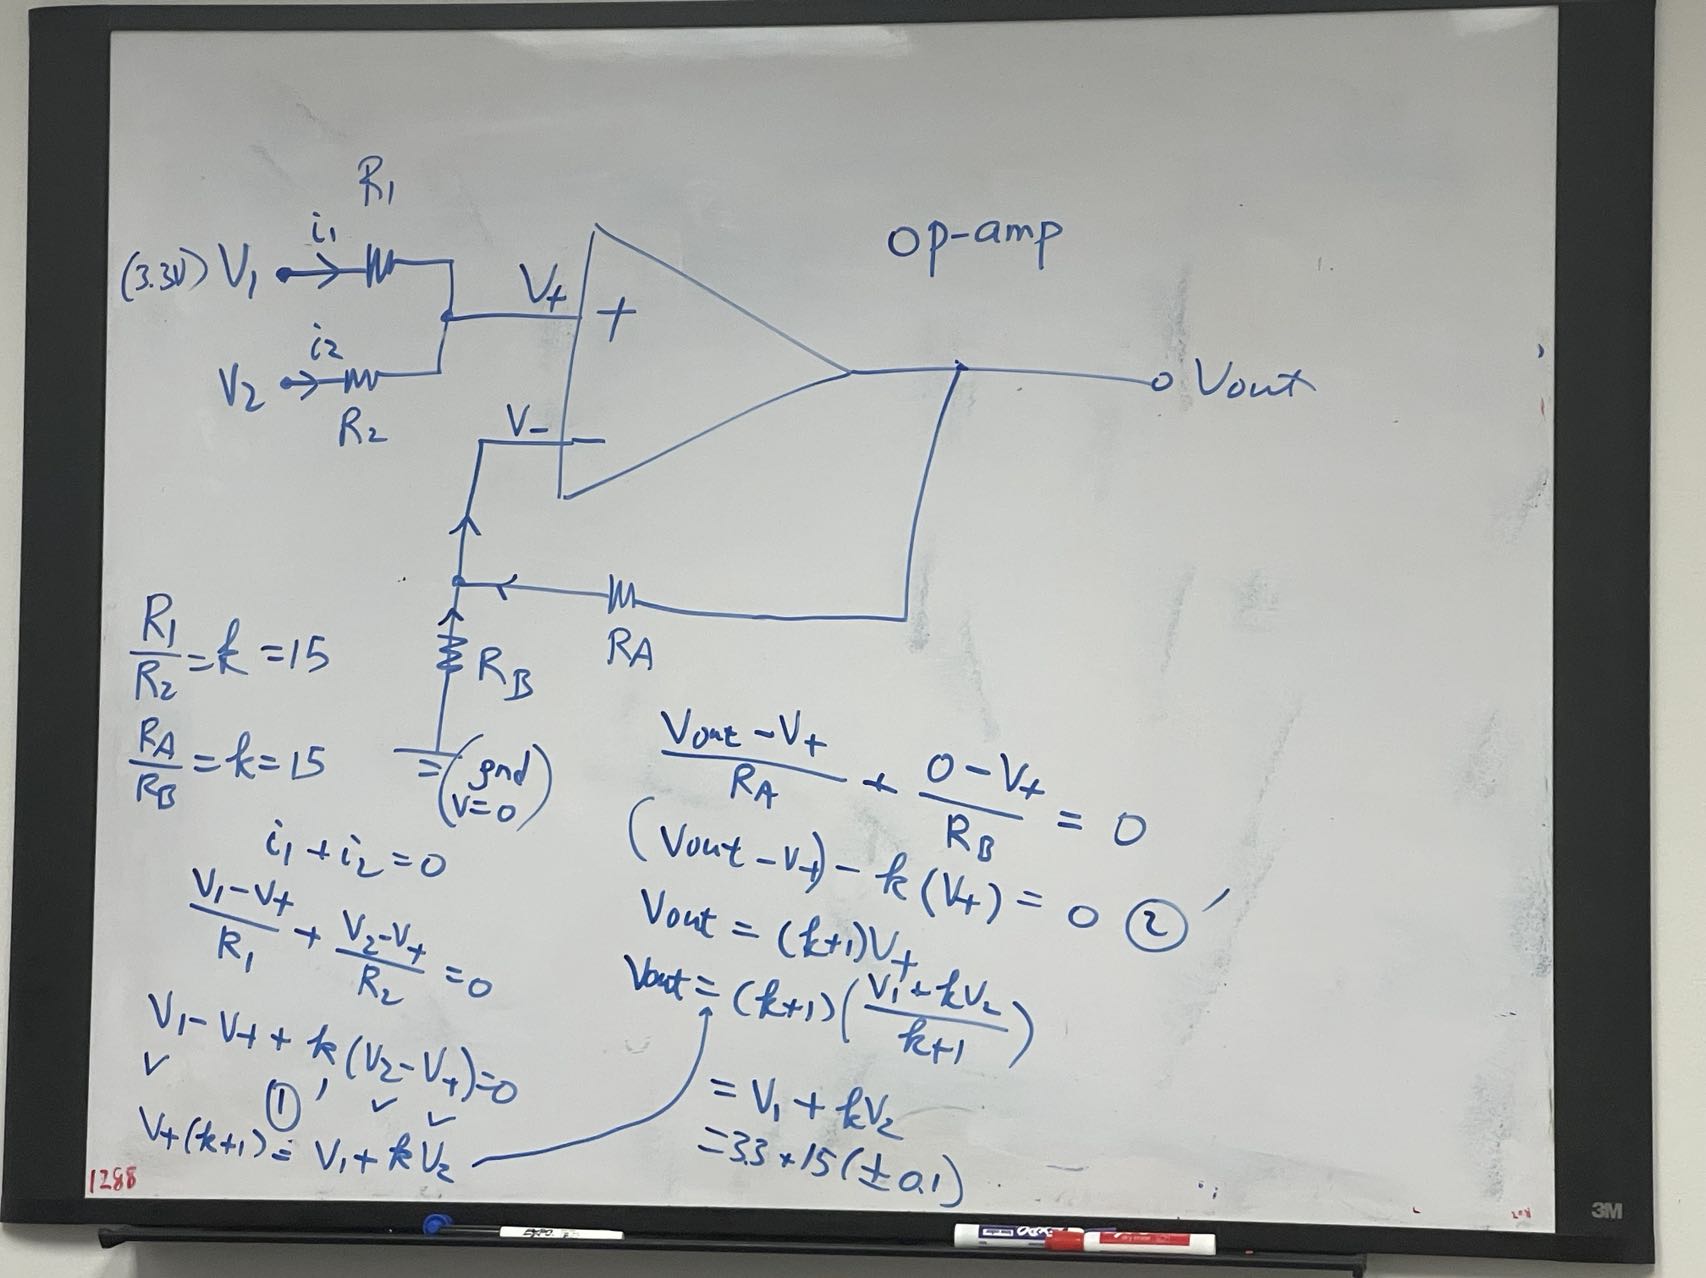 R1
i1
(3.3V) V1
Op-amp
V+
+
i2
V2
R2
V-
Vout
R1/R2 = k = 15
RB
RA
RA/RB = k = 15
(gnd
V=0)
i1 + i2 = 0
(V1-V+)/R1 + (V2-V+)/R2 = 0
V1 - V+ + k(V2-V+)=0
①'
V+(k+1) = V1 + kV2
(Vout - V+)/RA + (0 - V+)/RB = 0
(Vout - V+) - k(V+) = 0 ②'
Vout = (k+1)V+
Vout = (k+1)((V1 + kV2)/(k+1))
= V1 + kV2
= 3.3 + 15(± 0.1)
1288
3M